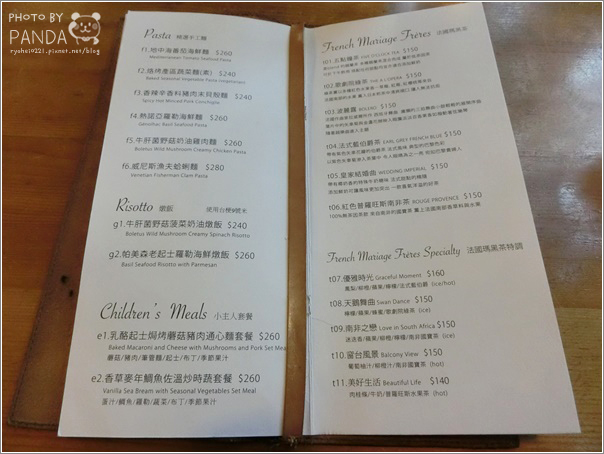 PHOTO BY
PANDA
ryohei0221.pixnet.net/blog
Pasta 精選手工麵
f1.地中海番茄海鮮麵 $260
Mediterranean Tomato Seafood Pasta
f2.烙烤產區蔬菜麵(素) $240
Baked Seasonal Vegetable Pasta (vegetarian)
f3.香辣辛香料豬肉末貝殼麵 $240
Spicy Hot Minced Pork Conchiglie
f4.熱諾亞羅勒海鮮麵 $260
Genovese Basil Seafood Pasta
f5.牛肝菌野菇奶油雞肉麵 $260
Boletus Wild Mushroom Creamy Chicken Pasta
f6.威尼斯漁夫蛤蜊麵 $280
Venetian Fisherman Clam Pasta
Risotto 燉飯
g1.牛肝菌野菇菠菜奶油燉飯 $240
Boletus Wild Mushroom Creamy Spinach Risotto
g2.帕美森老起士羅勒海鮮燉飯 $260
Basil Seafood Risotto with Parmesan
Children's Meals 小主人套餐
e1.乳酪起士焗烤蘑菇豬肉通心麵套餐 $260
Baked Macaroni and Cheese with Mushrooms and Pork Set Meal
蘑菇/豬肉/筆管麵/起士/布丁/季節果汁
e2.香草麥年鯛魚佐溫炒時蔬套餐 $260
Vanilla Sea Bream with Seasonal Vegetables Set Meal
蛋汁/鯛魚/羅勒/蔬菜/布丁/季節果汁
French Mariage Frères 法國瑪黑茶
t01.五點鐘茶 FIVE O'CLOCK TEA $150
t02.歌劇院綠茶 THE À L'OPERA $150
t03.波麗露 BOLERO $150
t04.法式藍伯爵茶 EARL GREY FRENCH BLUE $150
t05.皇家結婚曲 WEDDING IMPERIAL $150
t06.紅色普羅旺斯南非茶 ROUGE PROVENCE $150
French Mariage Frères Specialty 法國瑪黑茶特調
t07.優雅時光 Graceful Moment $160
鳳梨/柳橙/蘋果/檸檬/法式藍伯爵 (ice/hot)
t08.天鵝舞曲 Swan Dance $150
檸檬/蘋果/蜂蜜/歌劇院綠茶 (ice)
t09.南非之戀 Love in South Africa $150
迷迭香/蘋果/柳橙/檸檬/南非國寶茶 (ice)
t10.窗台風景 Balcony View $150
葡萄柚汁/柳橙汁/南非國寶茶 (hot)
t11.美好生活 Beautiful Life $140
肉桂條/牛奶/普羅旺斯水果茶 (hot)